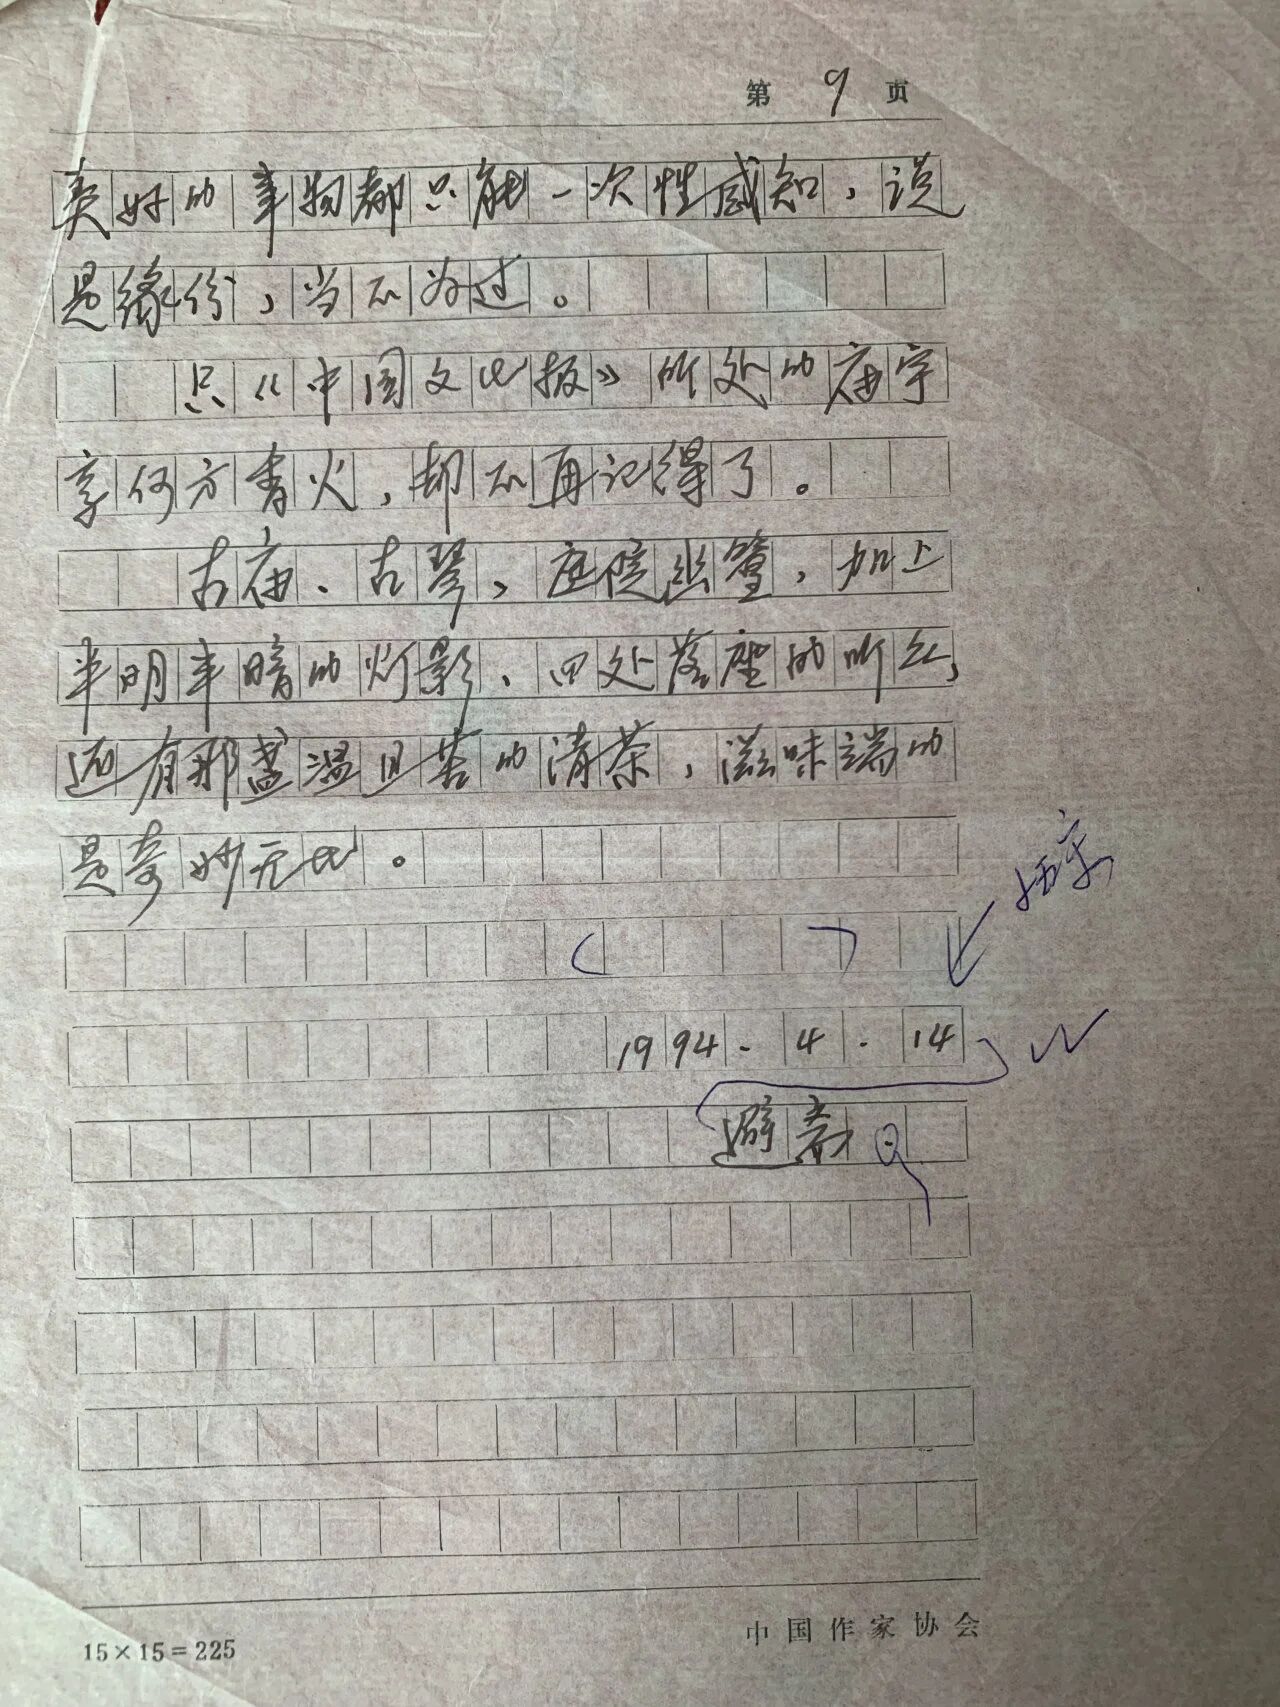 第 9 页
美好的事物都只能一次性感知，说
是缘份，当不为过。
只《中国文化报》所处的庙宇
享何方香火，却不再记得了。
古庙、古琴，庭院幽篁，加上
半明半暗的灯影、四处落座的听众，
还有那盏温且苦的清茶，滋味端的
是奇妙无比。
（ ）
1994.4.14
避斋
15×15=225
中国作家协会